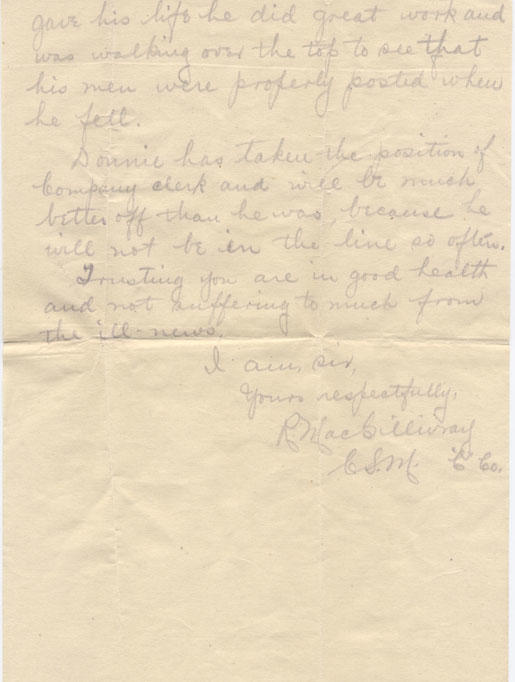 gave his life he did great work and
was walking over the top to see that
his men were properly posted when
he fell.
Donnie has taken the position of
Company clerk and will be much
better off than he was, because he
will not be in the line so often.
Trusting you are in good health
and not suffering to much from
the ill-news.
I am, sir,
Yours respectfully,
R. MacGillivray
C.S.M. "C" Co.